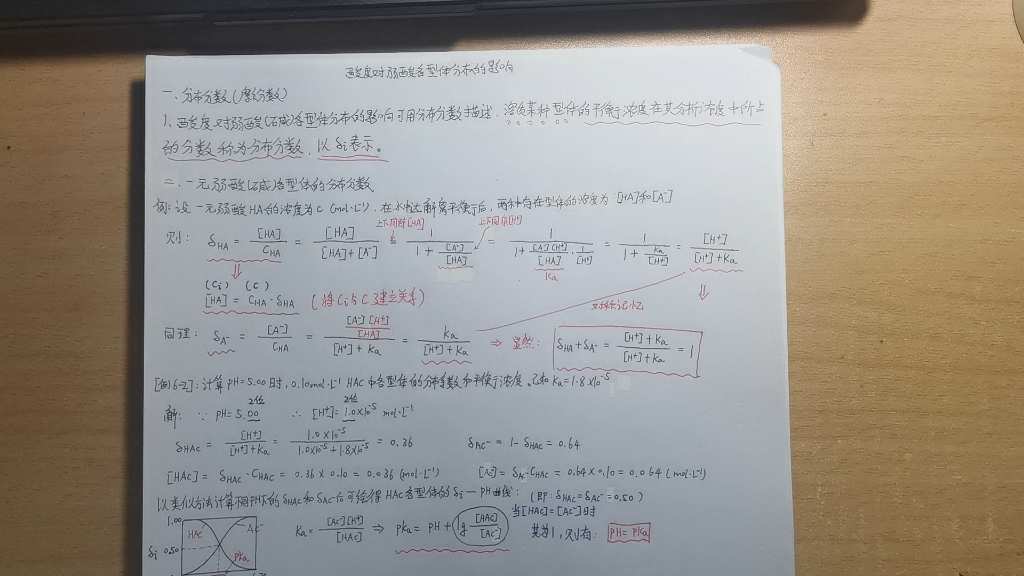 酸度对弱酸各型体分布的影响
一、分布分数(摩尔分数)
1、酸度对弱酸(碱)各型体分布的影响可用分布分数描述,溶质某种型体的平衡浓度在其分析浓度中所占
的分数称为分布分数,以δi表示。
二、一元弱酸(碱)各型体的分布分数
例:设一元弱酸HA的浓度为C(mol·L⁻¹),在水中达解离平衡后,两种存在型体的浓度为[HA]和[A⁻]
上下同除[HA] 上下同乘[H⁺]
则: δHA = [HA]/CHA = [HA]/([HA]+[A⁻]) = 1/(1+[A⁻]/[HA]) = 1/(1+[A⁻][H⁺]/[HA]·1/[H⁺]) = 1/(1+Ka/[H⁺]) = [H⁺]/([H⁺]+Ka)
Ka
⇓ ⇓
(Ci) (C)
[HA] = CHA·δHA (将Ci与C建立关系) 对称记忆
同理: δA⁻ = [A⁻]/CHA = ([A⁻][H⁺]/[HA])/([H⁺]+Ka) = Ka/([H⁺]+Ka) ⇒ 显然: δHA+δA⁻ = ([H⁺]+Ka)/([H⁺]+Ka) = 1
[例6-2]:计算PH=5.00时,0.10mol·L⁻¹ HAC中各型体的分布分数和平衡浓度。已知Ka=1.8×10⁻⁵
2位 2位
解: ∵ PH=5.00 ∴ [H⁺]=1.0×10⁻⁵ mol·L⁻¹
δHAC = [H⁺]/([H⁺]+Ka) = 1.0×10⁻⁵/(1.0×10⁻⁵+1.8×10⁻⁵) = 0.36 δAC⁻ = 1-δHAC = 0.64
[HAC] = δHAC·CHAC = 0.36×0.10 = 0.036 (mol·L⁻¹) [AC⁻] = δAC⁻·CHAC = 0.64×0.10 = 0.064 (mol·L⁻¹)
以类似方法计算不同PH下的δHAC和δAC⁻后可绘得HAC各型体的δi—PH曲线: (即:δHAC=δAC⁻=0.50)
当[HAC]=[AC⁻]时
1.00 HAC AC⁻
Ka = [AC⁻][H⁺]/[HAC] ⇒ PKa = PH + lg [HAC]/[AC⁻] 其为1,则有: PH=PKa
δi 0.50 PKa